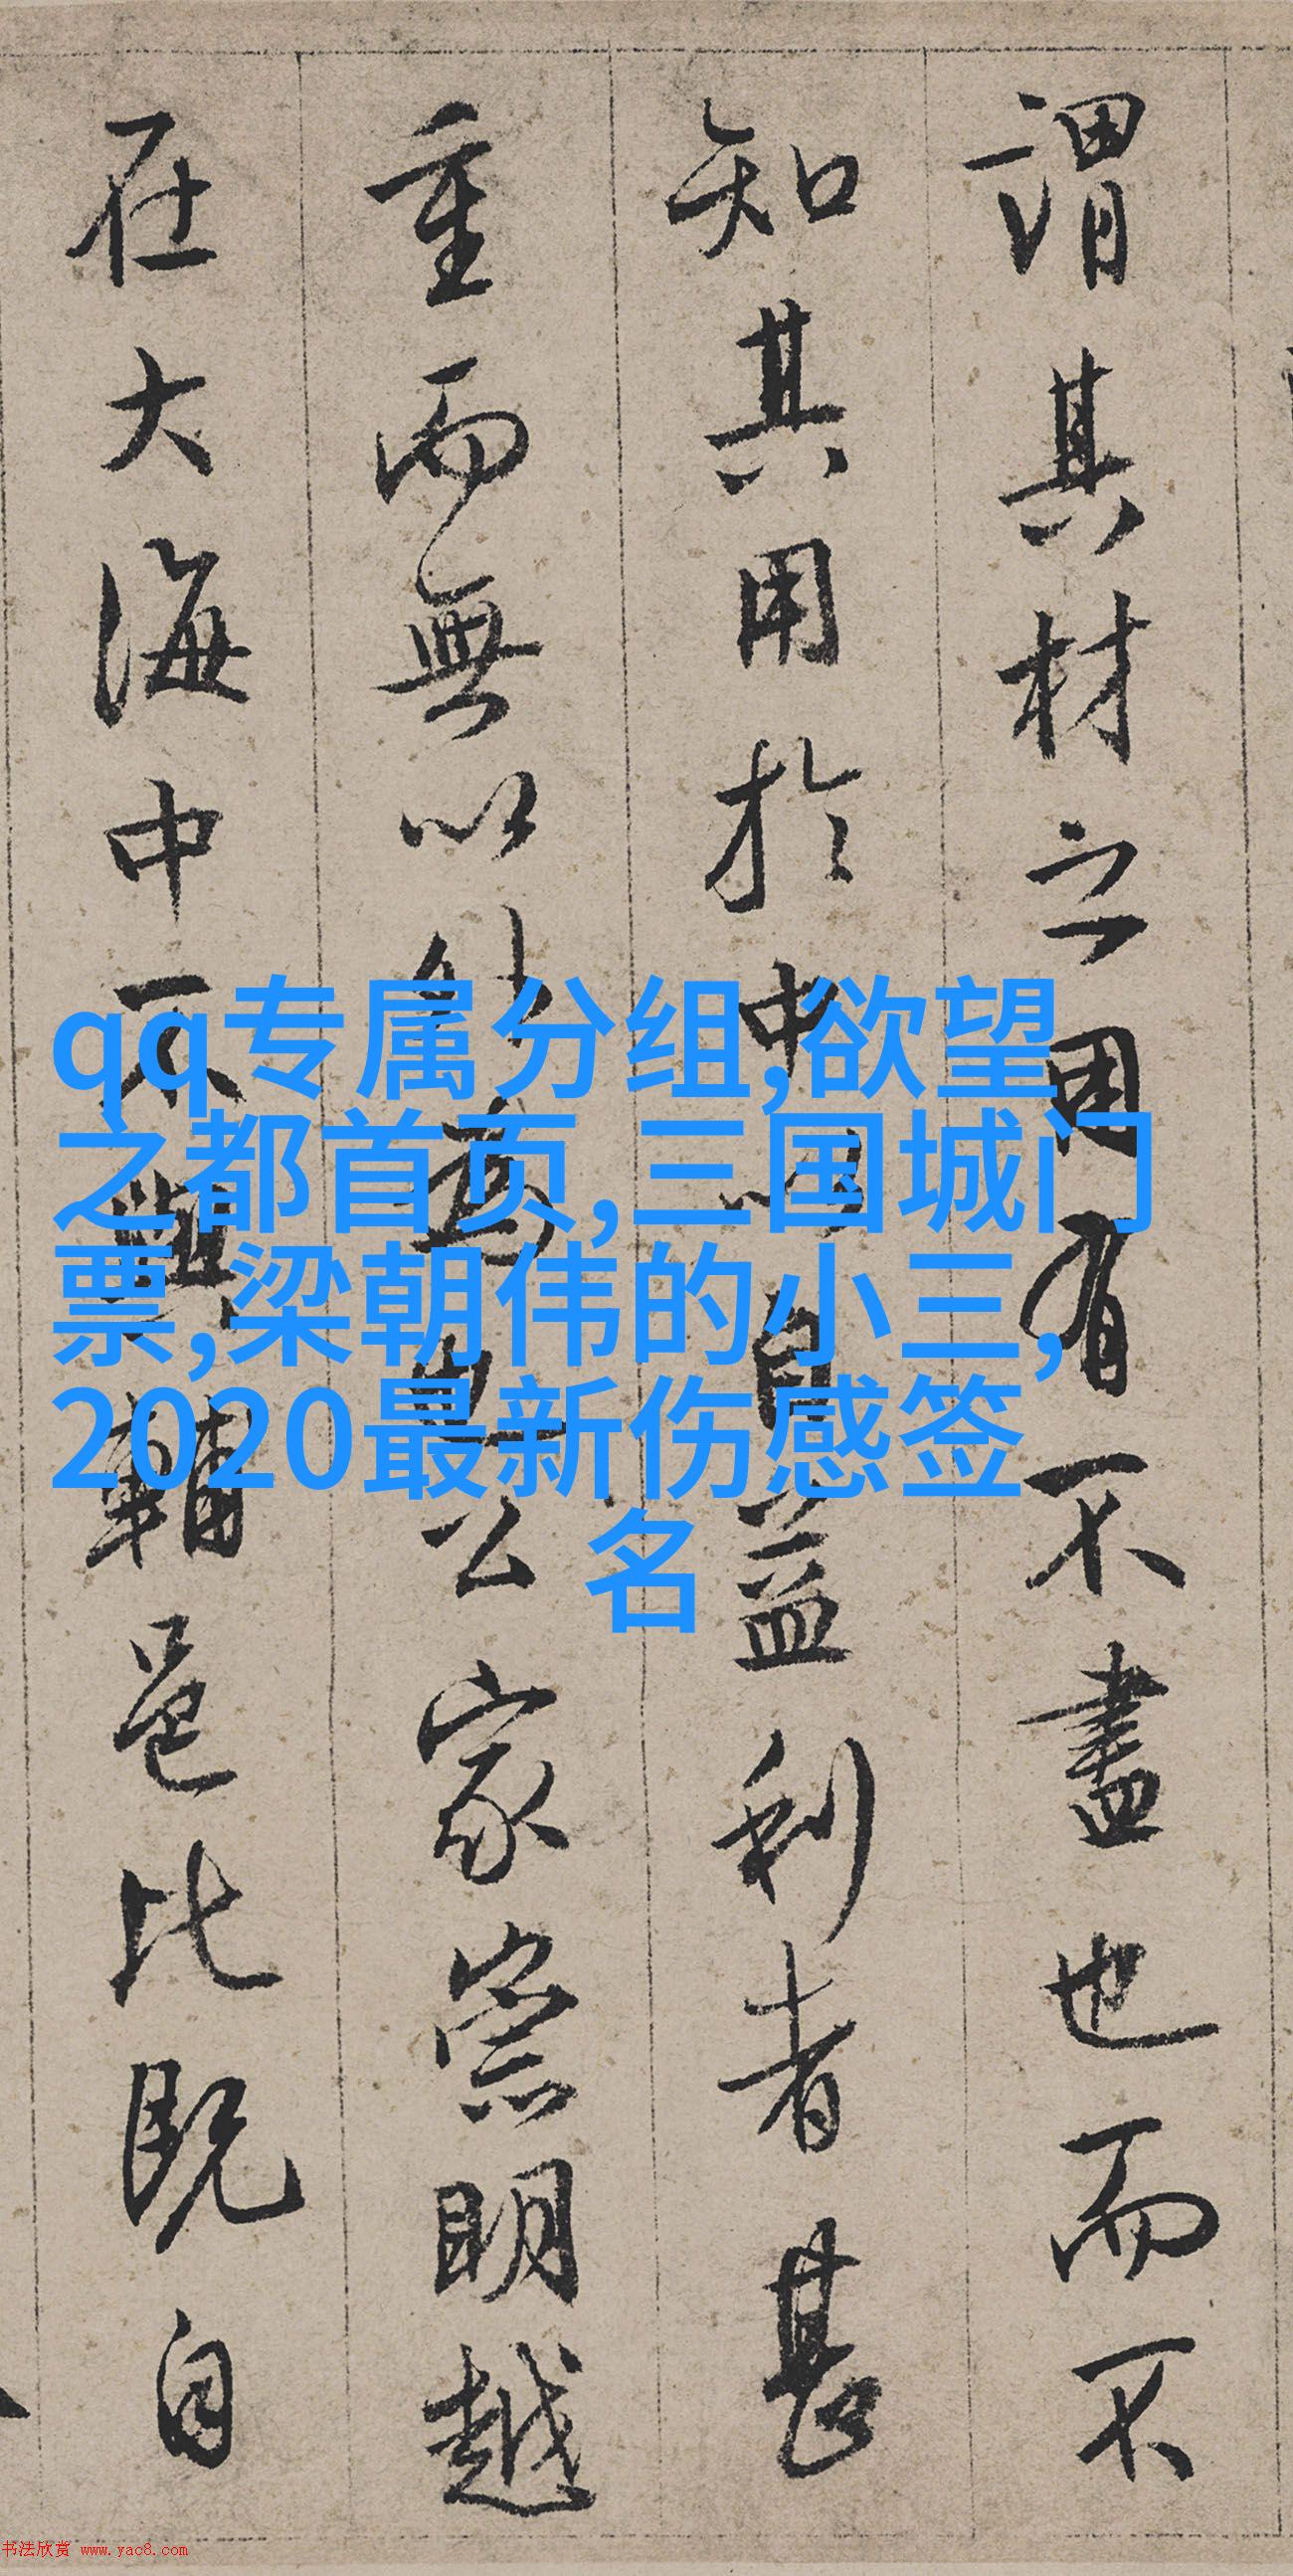 謂其材之用有不盡也而不
知其用於中以自益利者甚
重而無以外為也公家崇明越
在大海中不與輔邑比既自
qq专属分组,欲望
之都首页,三国城门
票,梁朝伟的小三,
2020最新伤感签
名
书法欣赏 www.yac8.com